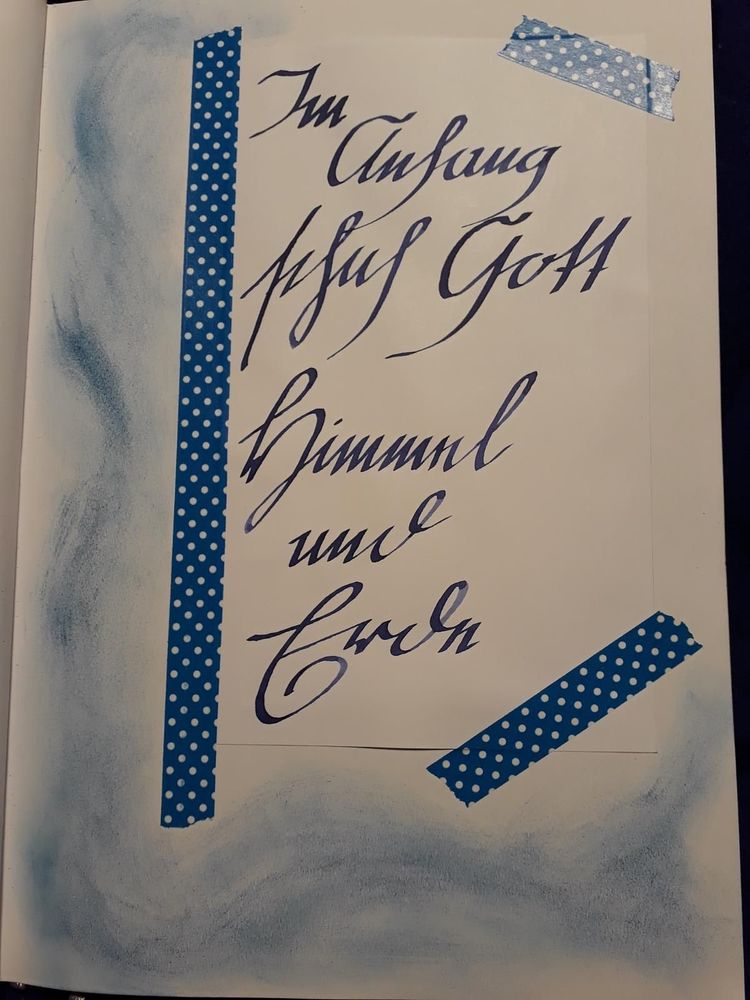 Im
Anfang
schuf Gott
Himmel
und
Erde